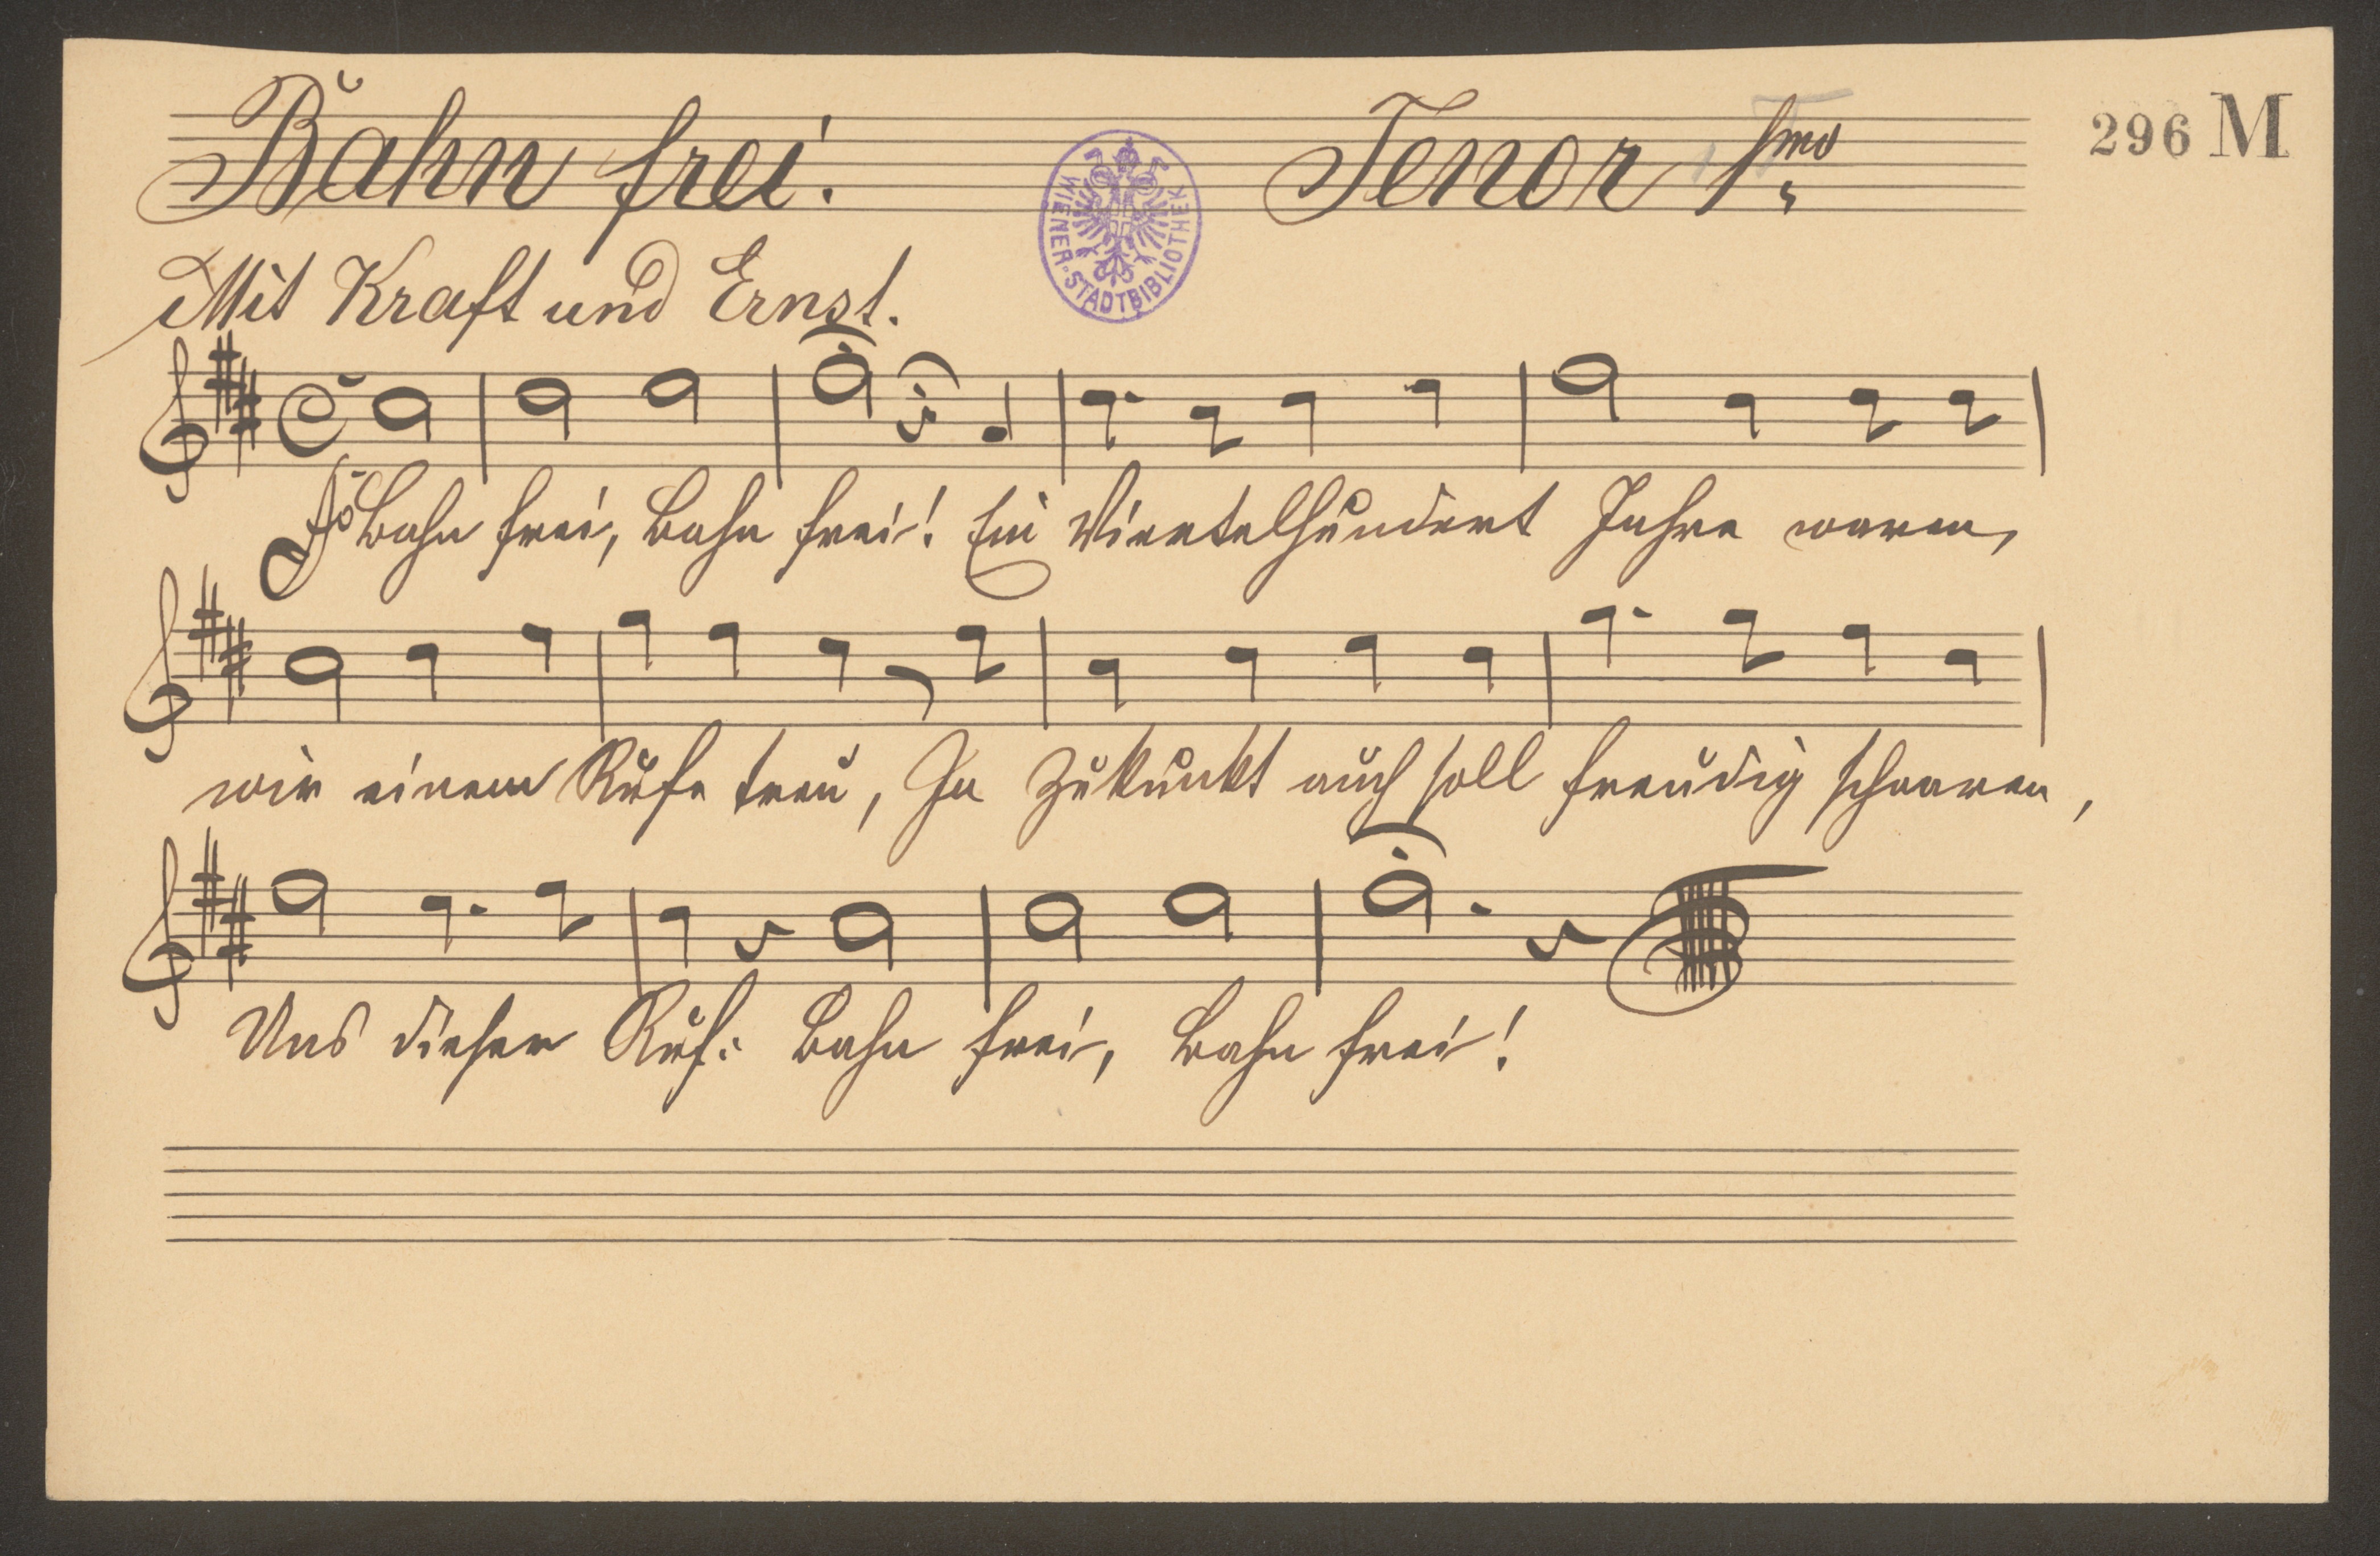 Bahn frei!
Tenor 1mo
296 M
WIENER-STADTBIBLIOTHEK
Mit Kraft und Ernst.
Bahn frei, Bahn frei! Ein Viertelhundert Jahre waren,
wir einem Rufe treu, In Zukunkt auch soll freudig schaaren,
Uns dieser Ruf: Bahn frei, Bahn frei!